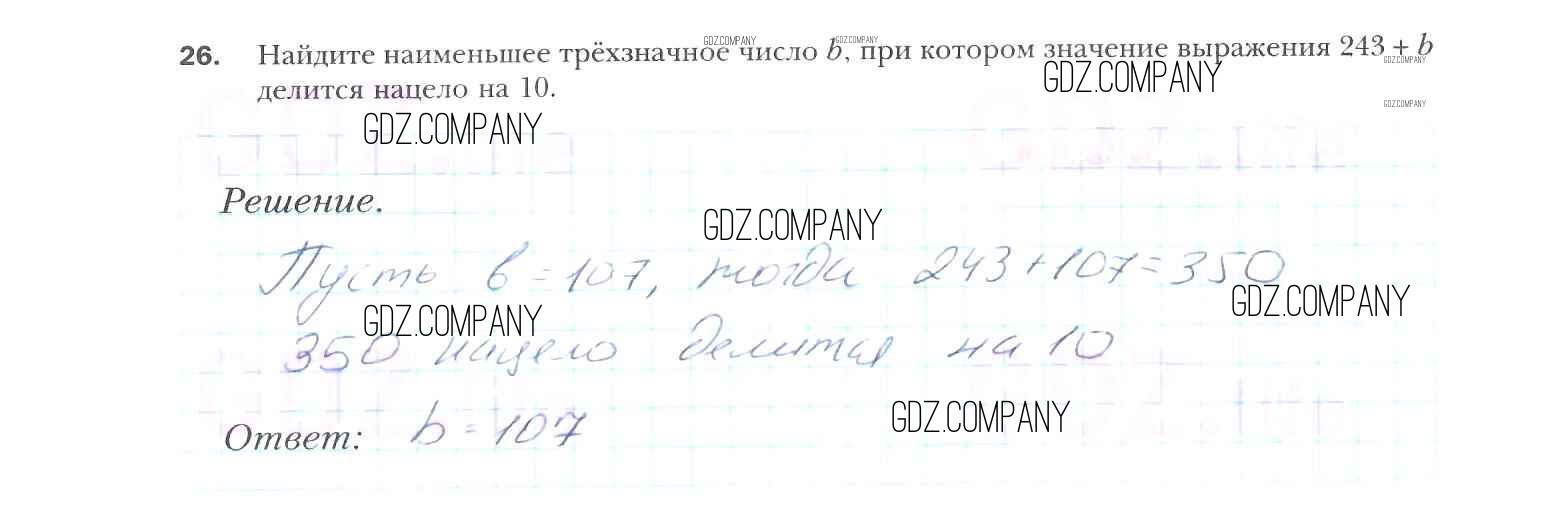 GDZ.COMPANY GDZ.COMPANY
26. Найдите наименьшее трёхзначное число b, при котором значение выражения 243 + b
GDZ.COMPANY
делится нацело на 10.
GDZ.COMPANY
GDZ.COMPANY
GDZ.COMPANY
Решение.
GDZ.COMPANY
Пусть b = 107, тогда 243 + 107 = 350
GDZ.COMPANY
GDZ.COMPANY
350 нацело делится на 10
GDZ.COMPANY
Ответ: b = 107